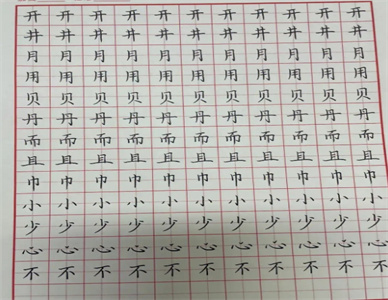 开开开开开开开开开开开
井井井井井井井井井井井
月月月月月月月月月月月
用用用用用用用用用用用
贝贝贝贝贝贝贝贝贝贝贝
丹丹丹丹丹丹丹丹丹丹丹
而而而而而而而而而而而
且且且且且且且且且且且
巾巾巾巾巾巾巾巾巾巾巾
小小小小小小小小小小小
少少少少少少少少少少少
心心心心心心心心心心心
不不不不不不不不不不不